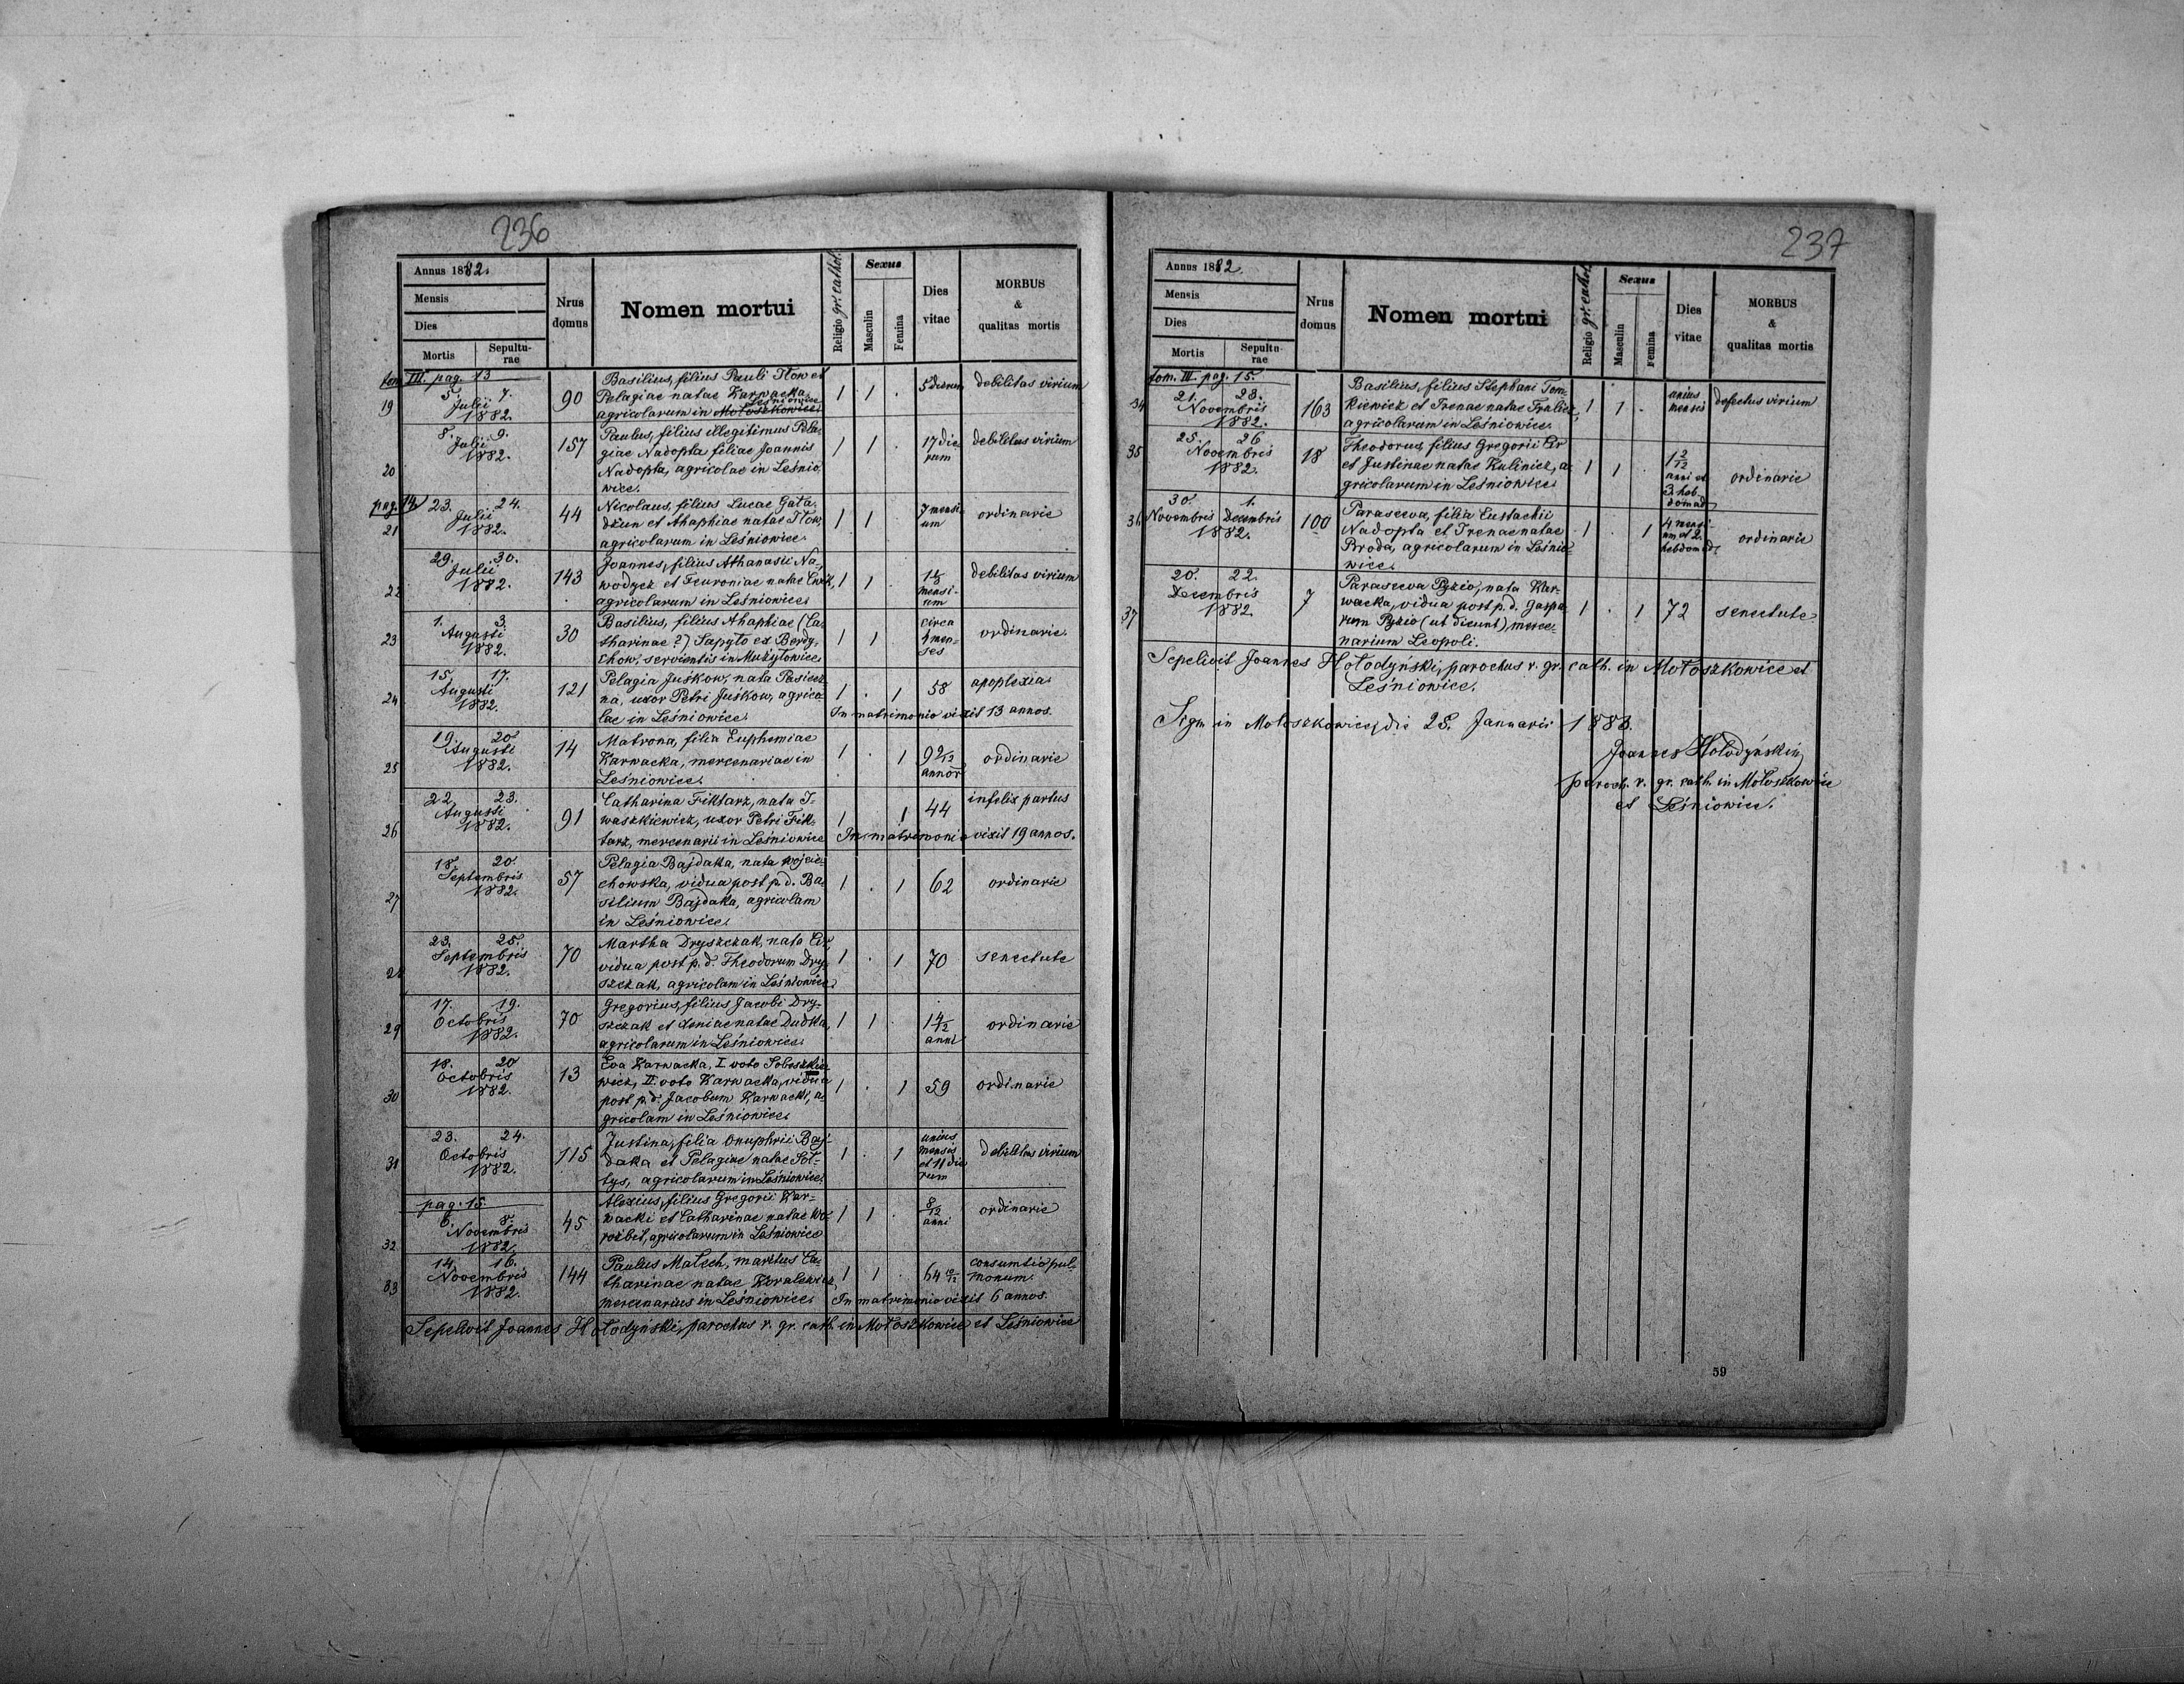 236
Annus 1882.
Mensis
Dies
Mortis
Sepultu-
rae
Nrus
domus
Nomen mortui
Religio gr. cathol.
Sexus
Masculin
Femina
Dies
vitae
MORBUS
&
qualitas mortis
tom III. pag. 13
19
5. 7.
Julii
1882.
90
Basilius, filius Pauli Iłow et
Pelagiae natae Karwacka,
Leśniowice
agricolarum in Mołoszkowice.
1 1 .
5 dierum
debilitas virium
20
8. 9.
Julii
1882.
157
Paulus, filius illegitimus Pela-
giae Nadopta filiae Joannis
Nadopta, agricolae in Leśnio-
wice.
1 1 .
17 die-
rum
debilitas virium
pag. 14
21
23. 24.
Julii
1882.
44
Nicolaus, filius Lucae Gała-
dziun et Ahaphiae natae Iłow,
agricolarum in Leśniowice.
1 1
7 mensi-
um
ordinarie
22
29. 30.
Julii
1882.
143
Joannes, filius Athanasii Na-
wodyck et Feuroniae natae Ćwik,
agricolarum in Leśniowice.
1 1 .
mensi-
um
debilitas virium
23
1. 3.
Augusti
1882.
30
Basilius, filius Ahaphiae (Ca-
tharinae?) Sapyto ex Berdy-
chow, servientis in Mużyłowice.
1 1
circa
4 men-
ses
ordinarie.
24
15. 17.
Augusti
1882.
121
Pelagia Juśkow, nata Pasiecz-
na, uxor Petri Juśkow, agrico-
lae in Leśniowice.
1 . 1
58
apoplexia
In matrimonio vixit 13 annos.
25
19. 20.
Augusti
1882.
14
Matrona, filia Euphemiae
Karwacka, mercenariae in
Leśniowice.
1 . 1
9 2/12
annor
ordinarie
26
22. 23.
Augusti
1882.
91
Catharina Fiktarz, nata I-
waszkiewicz, uxor Petri Fik-
tarz, mercenarii in Leśniowice
1 1
44
infelix partus
In matrimonio vixit 19 annos.
27
18. 20.
Septembris
1882.
57
Pelagia Bajdaka, nata Wojcie-
chowska, vidua post p. d. Ba-
silium Bajdaka, agricolam
in Leśniowice.
1 . 1
62
ordinarie
28
23. 25.
Septembris
1882.
70
Martha Dryszczak, nata Cir,
vidua post p. d. Theodorum Dry-
szczak, agricolam in Leśniowice.
1 . 1
70
senectute
29
17. 19.
Octobris
1882.
70
Gregorius, filius Jacobi Dry-
szczak et Xeniae natae Dudka,
agricolarum in Leśniowice.
1 1 .
1 4/12
anni
ordinarie
30
18. 20
Octobris
1882.
13
Eva Karwacka, I. voto Soboszkie-
wicz, II. voto Karwacka, vidua
post p. d. Jacobum Karwacki, a-
gricolam in Leśniowice.
1 . 1
59
ordinarie
31
23. 24.
Octobris
1882.
115
Justina, filia Onuphrii Baj-
daka et Pelagiae natae Soł-
tys, agricolarum in Leśniowice.
1 . 1
unius
mensis
et 11 die-
rum
debilitas virium
pag. 15
32
6. 8.
Novembris
1882.
45
Alexius, filius Gregorii Kar-
wacki et Catharinae natae Wo-
rozbit, agricolarum in Leśniowice
1 1 .
8/12
anni
ordinarie
33
14. 16.
Novembris
1882.
144
Paulus Malech, maritus Ca-
tharinae natae Kowalewicz,
mercenarius in Leśniowice.
1 1 .
64
consumtio pul-
monum.
In matrimonio vixit 6 annos.
Sepelivit Joannes Hołodyński, parochus r. gr. cath. in Mołoszkowice et Leśniowice
237
Annus 1882.
Mensis
Dies
Mortis
Sepultu-
rae
Nrus
domus
Nomen mortui
Religio gr. cathol.
Sexus
Masculin
Femina
Dies
vitae
MORBUS
&
qualitas mortis
tom. III. pag. 15.
34
21. 23.
Novembris
1882.
163
Basilius, filius Stephani Tom-
kiewicz et Irenae natae Fralicz,
agricolarum in Leśniowice.
1 1 .
unius
mensis
defectus virium
35
25. 26
Novembris
1882.
18
Theodorus, filius Gregorii Cir
et Justinae natae Kulinicz, a-
gricolarum in Leśniowice.
1 1 .
1 2/12
anni et
3. heb-
domad
ordinarie
36
30. 1.
Novembris Decembris
1882.
100
Parasceva, filia Eustachii
Nadopta et Irenae natae
Broda, agricolarum in Leśnio-
wice.
1 . 1
4 mensi-
um et 2.
hebdomad
ordinarie
37
20. 22.
Decembris
1882
7
Parasceva Pyzio, nata Kar-
wacka, vidua post p. d. Gaspa-
rum Pyzio (ut dicunt) merce-
narium Leopoli.
1 . 1
72
senectute
Sepelivit Joannes Hołodyński, parochus r. gr. cath. in Mołoszkowice et
Leśniowice.
Sigm in Mołoszkowice, die 25. Januarii 1883.
Joannes Hołodyński,
paroch. r. gr. cath. in Mołoszkowice
et Leśniowice.
59